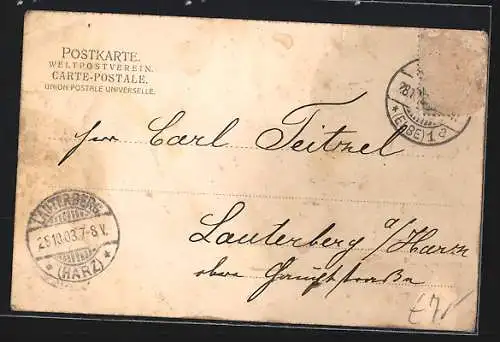 POSTKARTE.
WELTPOSTVEREIN.
CARTE-POSTALE.
UNION POSTALE UNIVERSELLE.
28.1
*(ELBE)1a
Carl Teitzel
LAUTERBERG
29.10.03.7-8 V.
*(HARZ)*
Lauterberg a/Harz
obere Hauptstraße